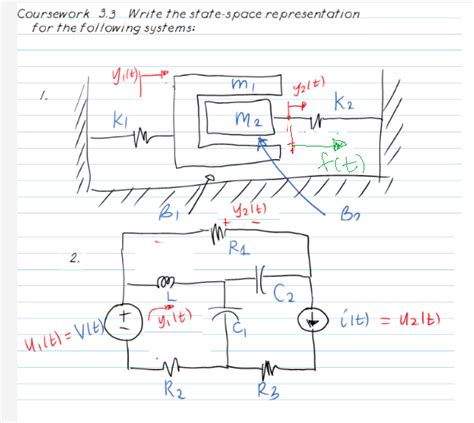 Coursework 3.3 Write the state-space representation
for the following systems:
1.
y₁(t)
m₁
y₂(t)
K₂
K₁
m₂
f(t)
B₁
B₂
y₂(t)
+ -
R₁
2.
L
C₂
y₁(t)
+
-
C₁
i(t) = u₂(t)
u₁(t) = V(t)
R₂
R₃